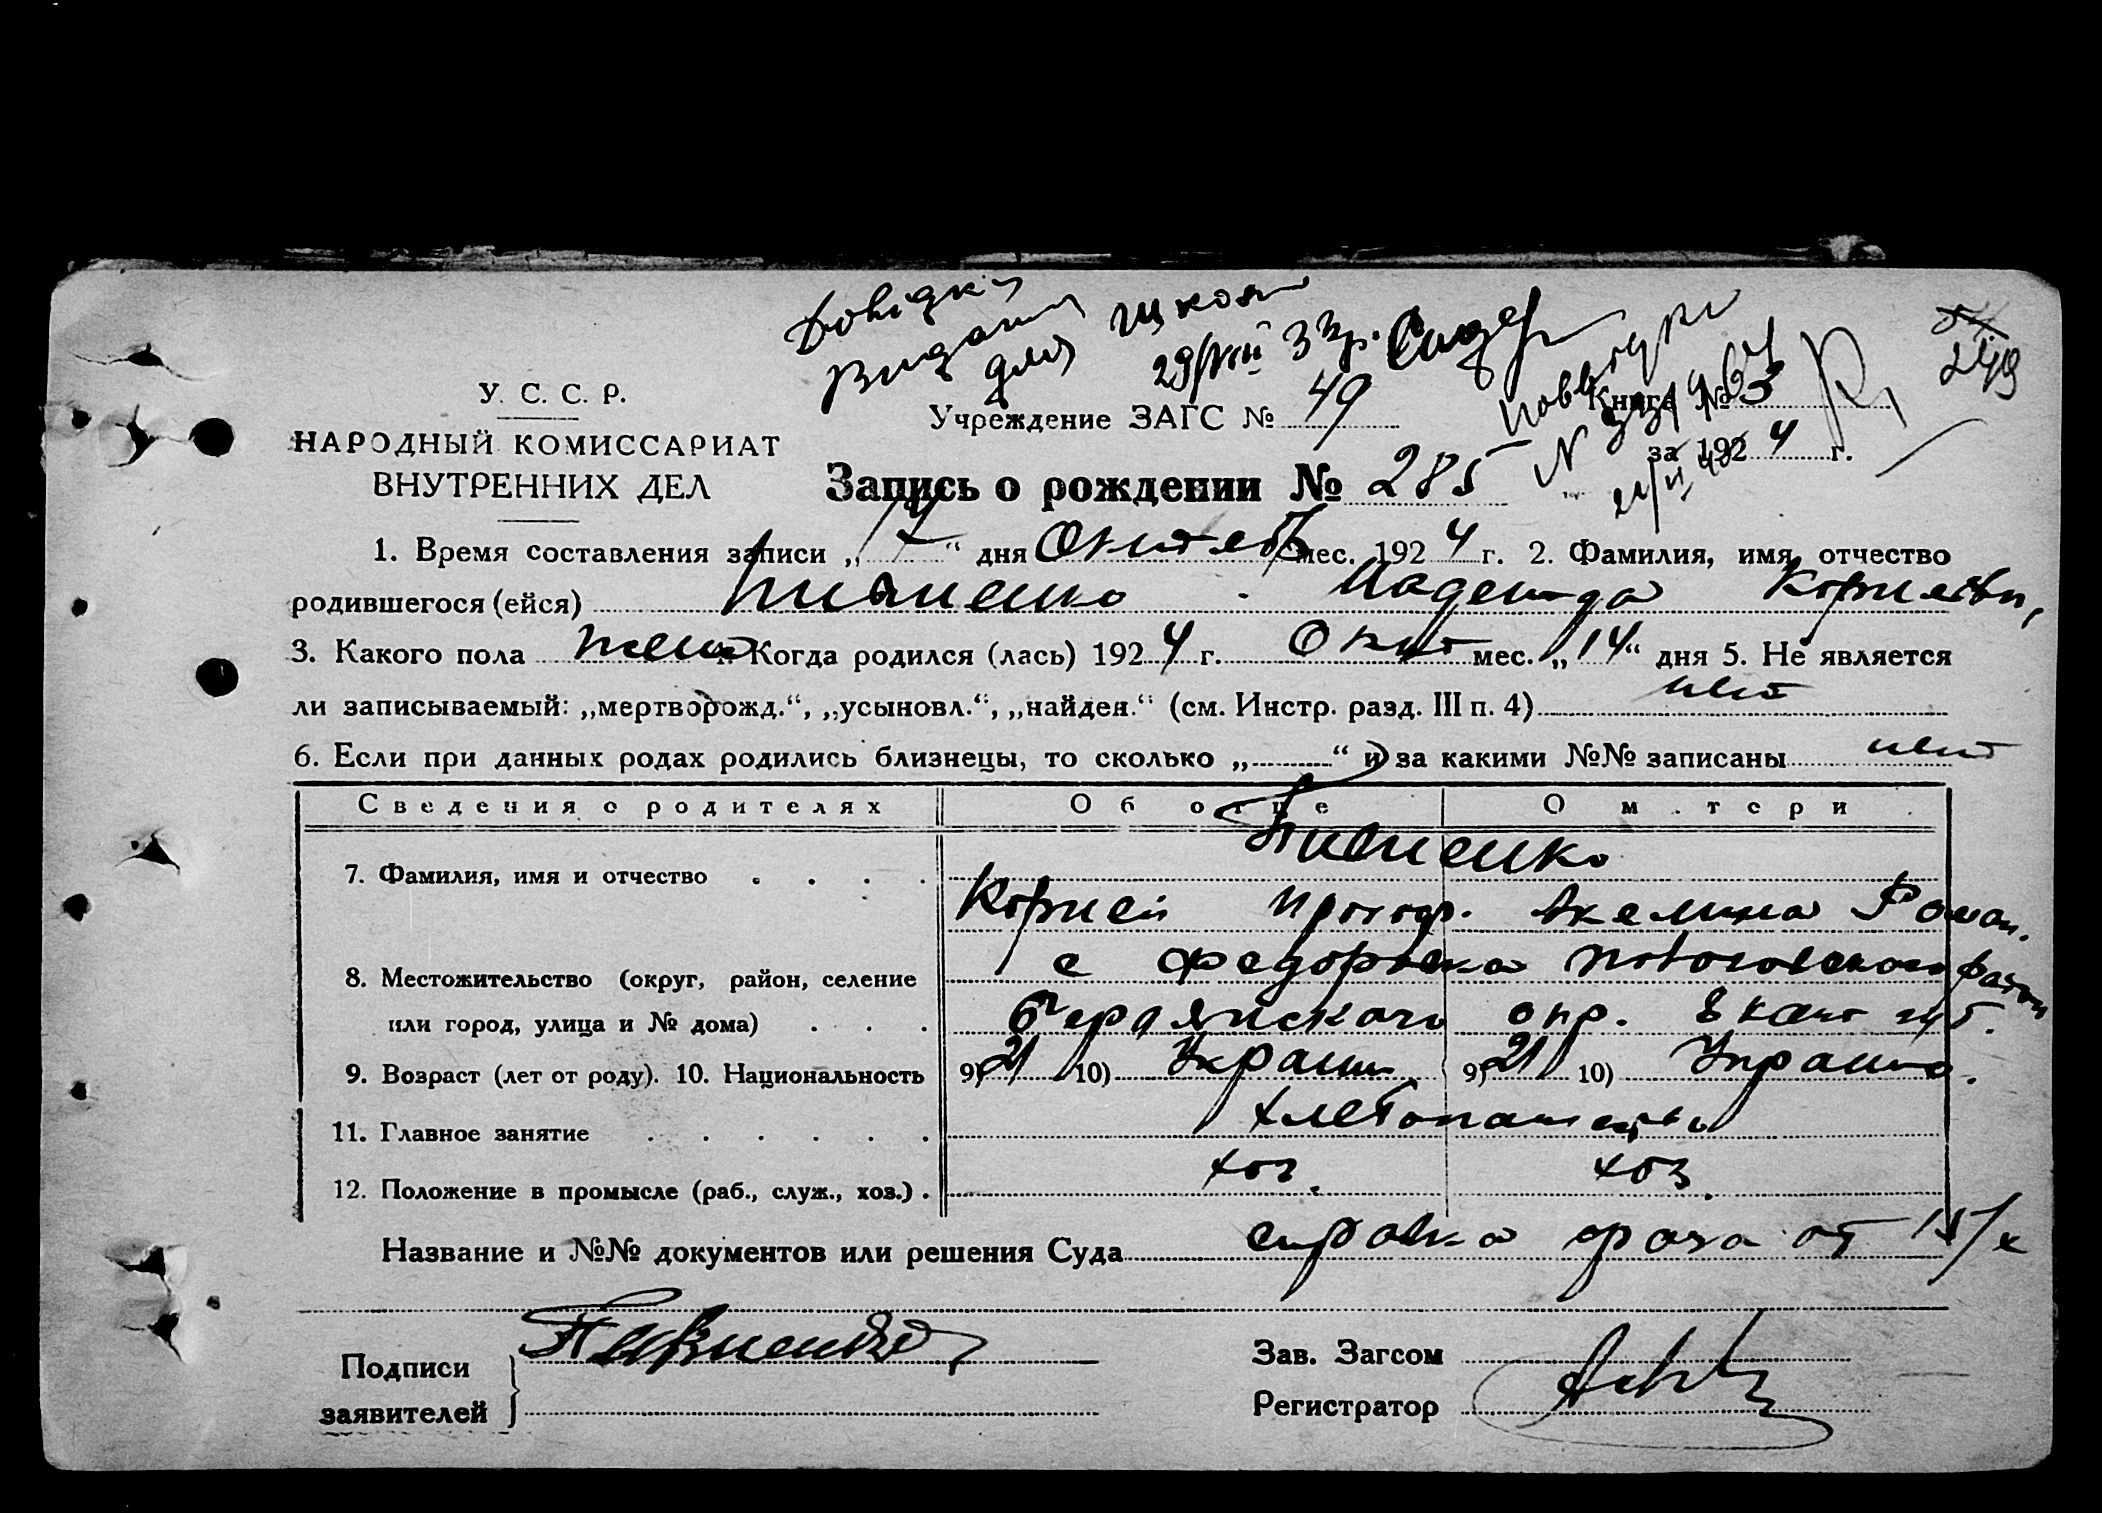 Довідку
видано
для школи
29/VIII 33р.
У. С. С. Р.
НАРОДНЫЙ КОМИССАРИАТ
ВНУТРЕННИХ ДЕЛ
Учреждение ЗАГС № 49
Книга №
за 1924 г.
249
Запись о рождении № 285
1. Время составления записи „17“ дня Октяб мес. 1924 г. 2. Фамилия, имя, отчество
родившегося (ейся) Пивненко Надежда Корнеевн,
3. Какого пола женск 4. Когда родился (лась) 1924 г. Окт мес. „14“ дня 5. Не является
ли записываемый: „мертворожд.“, „усыновл.“, „найден.“ (см. Инстр. разд. III п. 4) нет
6. Если при данных родах родились близнецы, то сколько „ “ и за какими №№ записаны нет
Сведения о родителях Об отце О м.тери
7. Фамилия, имя и отчество Пивненко
Корней Прокоф. Акелина Роман.
8. Местожительство (округ, район, селение с Федоровка район
или город, улица и № дома) Бердянского окр. Екат губ.
9. Возраст (лет от роду). 10. Национальность 9) 21 10) Украин 9) 21 10) Украинка.
11. Главное занятие хлебопашество
12. Положение в промысле (раб., служ., хоз.) хоз. хоз.
Название и №№ документов или решения Суда справка врача от 15/X
Подписи
заявителей
Пивненко
Зав. Загсом
Регистратор